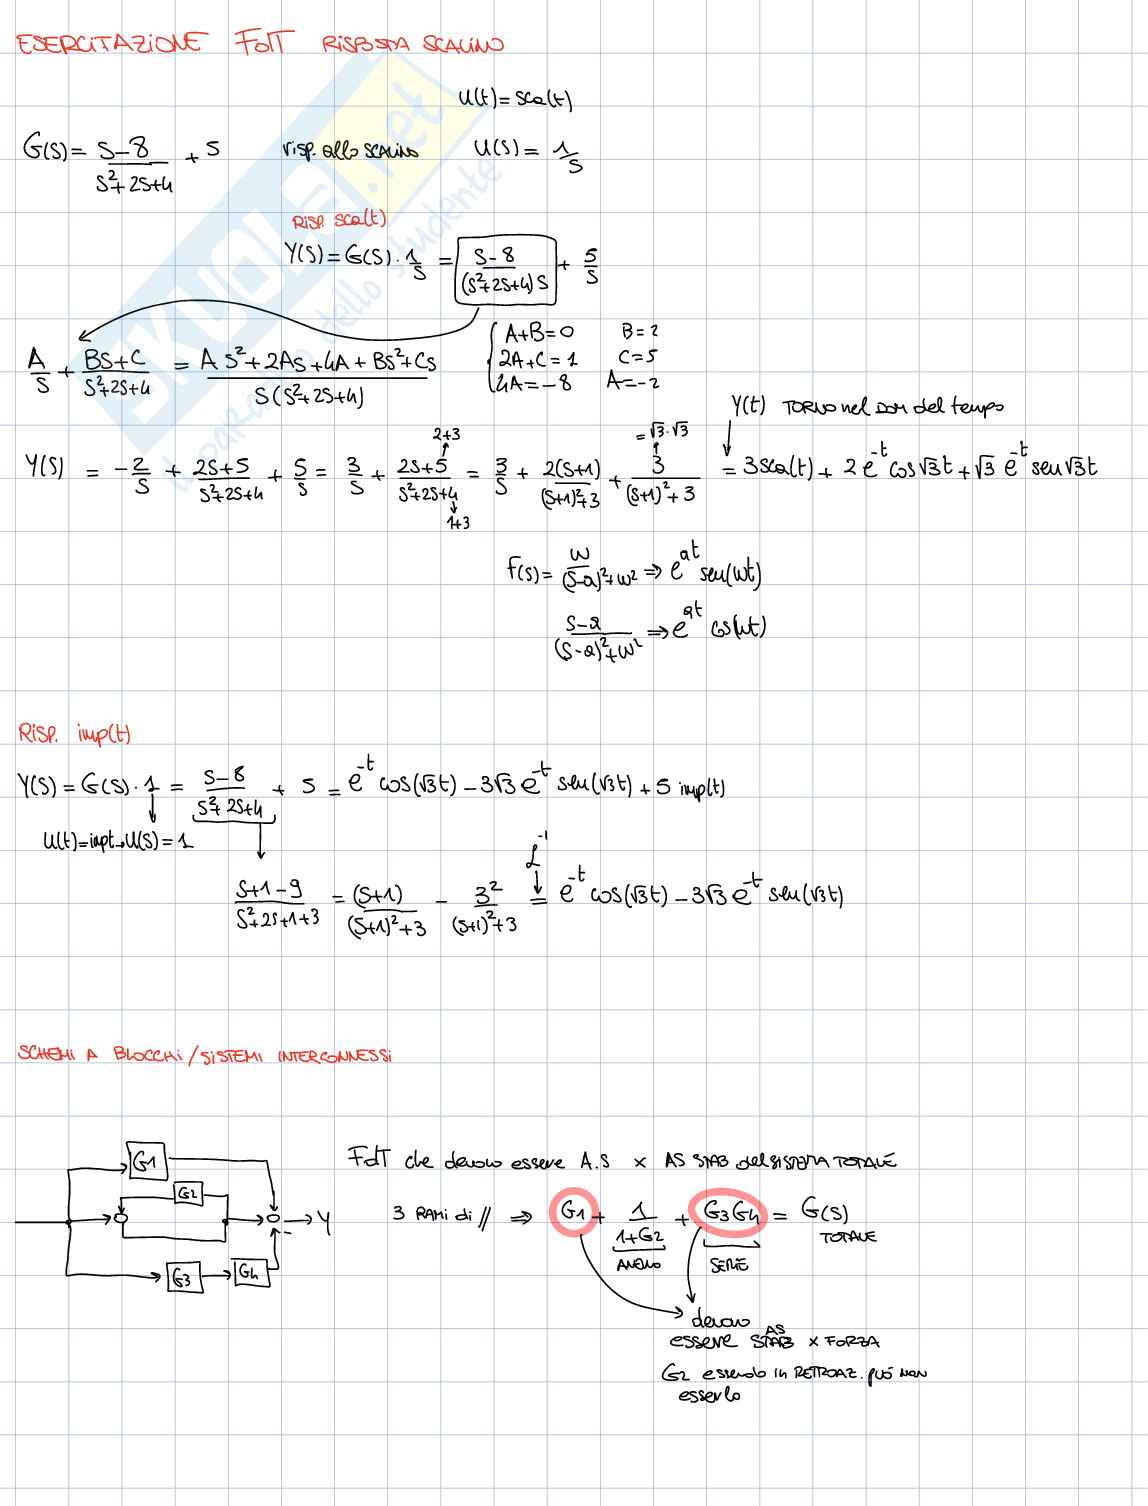 ESERCITAZIONE FdT RISPOSTA SCALINO
U(t)=sca(t)
G(s)= (s-8)/(s²+2s+4) + 5 risp. allo scalino U(s)= 1/s
RISP. sca(t)
Y(s)=G(s)·1/s = (s-8)/((s²+2s+4)s) + 5/s
A/s + (Bs+C)/(s²+2s+4) = (As²+2As+4A+Bs²+Cs)/(s(s²+2s+4))
A+B=0 B=2
2A+C=1 C=5
4A=-8 A=-2
Y(t) TORNO nel DOM del tempo
2+3
=√3·√3
Y(s) = -2/s + (2s+5)/(s²+2s+4) + 5/s = 3/s + (2s+5)/(s²+2s+4) = 3/s + 2(s+1)/((s+1)²+3) + 3/((s+1)²+3) = 3sca(t) + 2e^-t cos√3t + √3 e^-t sen√3t
1+3
F(s)= w/((s-a)²+w²) ⇒ e^at sen(wt)
(s-a)/((s-a)²+w²) ⇒ e^at cos(wt)
RISP. imp(t)
Y(s)=G(s)·1 = (s-8)/(s²+2s+4) + 5 = e^-t cos(√3t) - 3√3 e^-t sen(√3t) + 5 imp(t)
U(t)=impt→U(s)=1
ℒ^-1
(s+1-9)/(s²+2s+1+3) = (s+1)/((s+1)²+3) - 3²/((s+1)²+3) = e^-t cos(√3t) - 3√3 e^-t sen(√3t)
SCHEMI A BLOCCHI/SISTEMI INTERCONNESSI
G1
G2
Y
-
G3 G4
FdT che devono essere A.S x AS STAB del SISTEMA TOTALE
3 RAMI di // ⇒ G1 + 1/(1+G2) + G3G4 = G(s)
TOTALE
ANELLO SERIE
devono
essere AS STAB x FORZA
G2 essendo in RETROAZ. può non
esserlo
SKUOLA.net
il paradiso dello studente